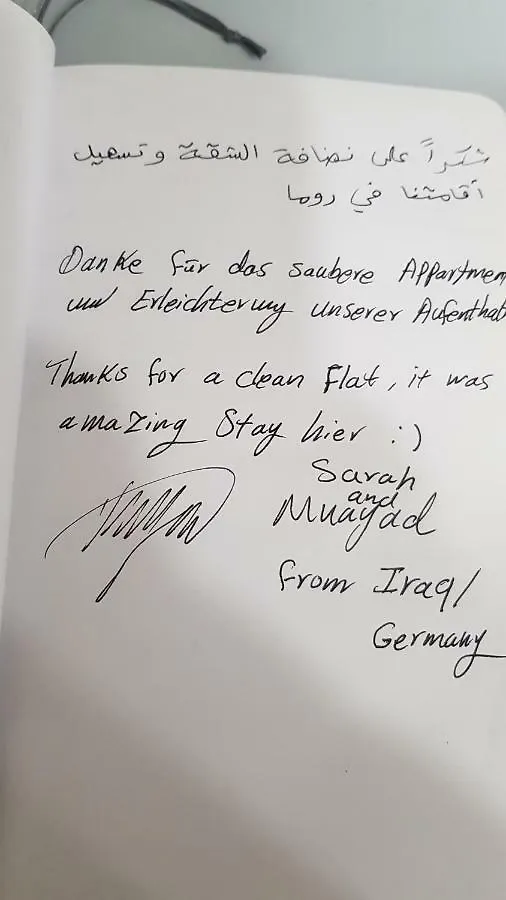 شكراً على نضافة الشقة وتسهيل
أقامتنا في روما
Danke für das saubere Appartmen
und Erleichterung unserer Aufenthalt
Thanks for a clean Flat, it was
amazing Stay hier :)
Sarah
and
Muayad
from Iraq/
Germany